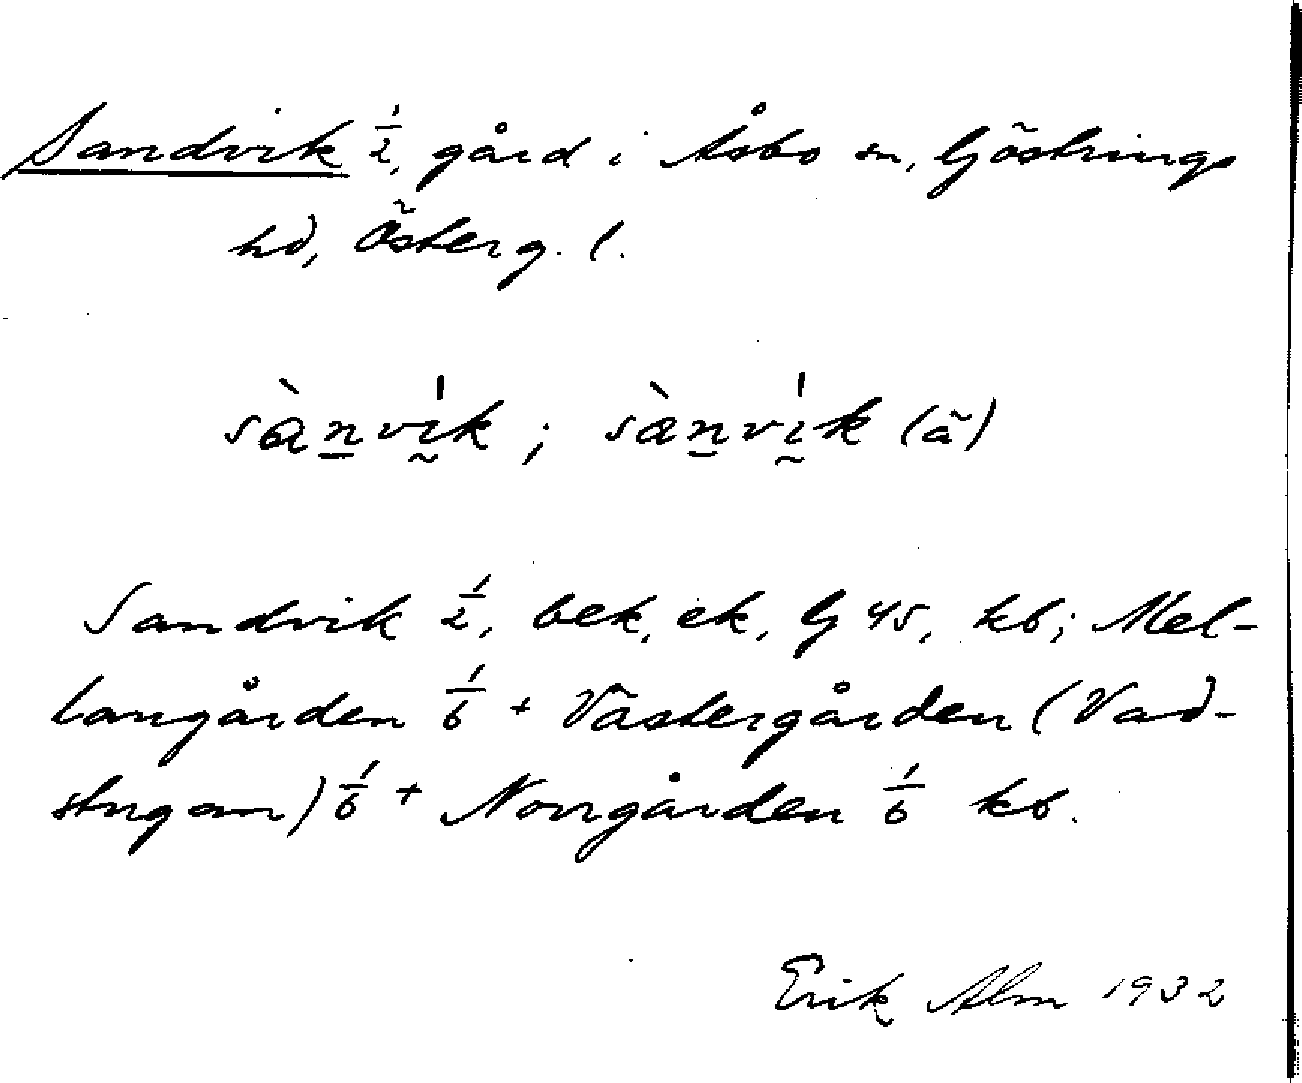 Sandvik 1/2, gård i Åsbo sn, Göstrings
hd, Österg. l.
sànvḭk ; sànvḭk (ã)
Sandvik 1/2, bek, ek, G 45, kb; Mel-
langården 1/6 + Västergården (Vad-
stugan) 1/6 + Norrgården 1/6 kb.
Erik Alm 1932